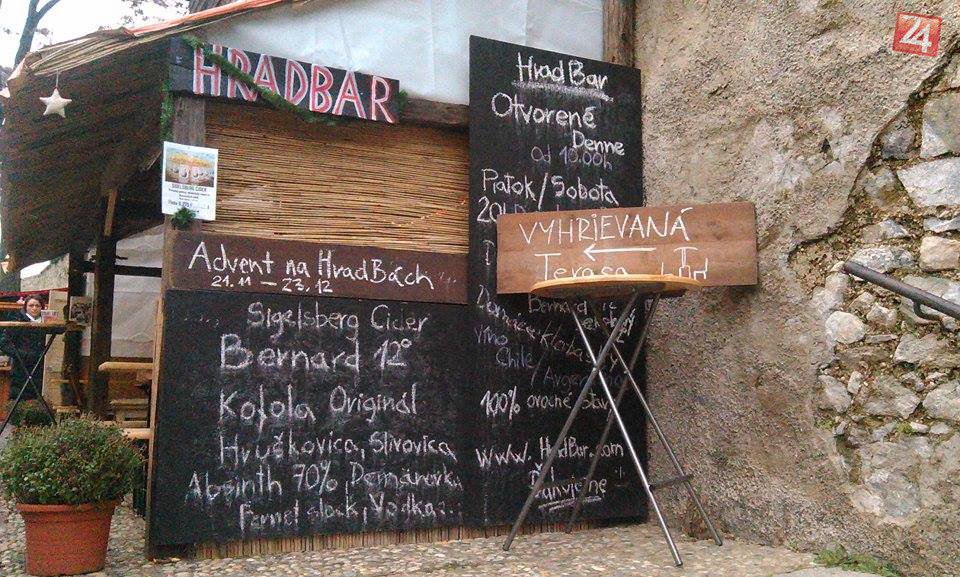 HRADBAR
SIGELSBERG CIDER
Advent na HradBách
21.11 – 23.12
Sigelsberg Cider
Bernard 12°
Kofola Originál
Hruškovica, Slivovica
Absinth 70%, Demänovka
Fernet stock, Vodka...
Hrad Bar
Otvorené
Denne
Od 10.00h
Piatok/Sobota
VYHRIEVANÁ
Terasa
Bernard
Víno
Chile/
100% ovocné
www.HradBar.com
24